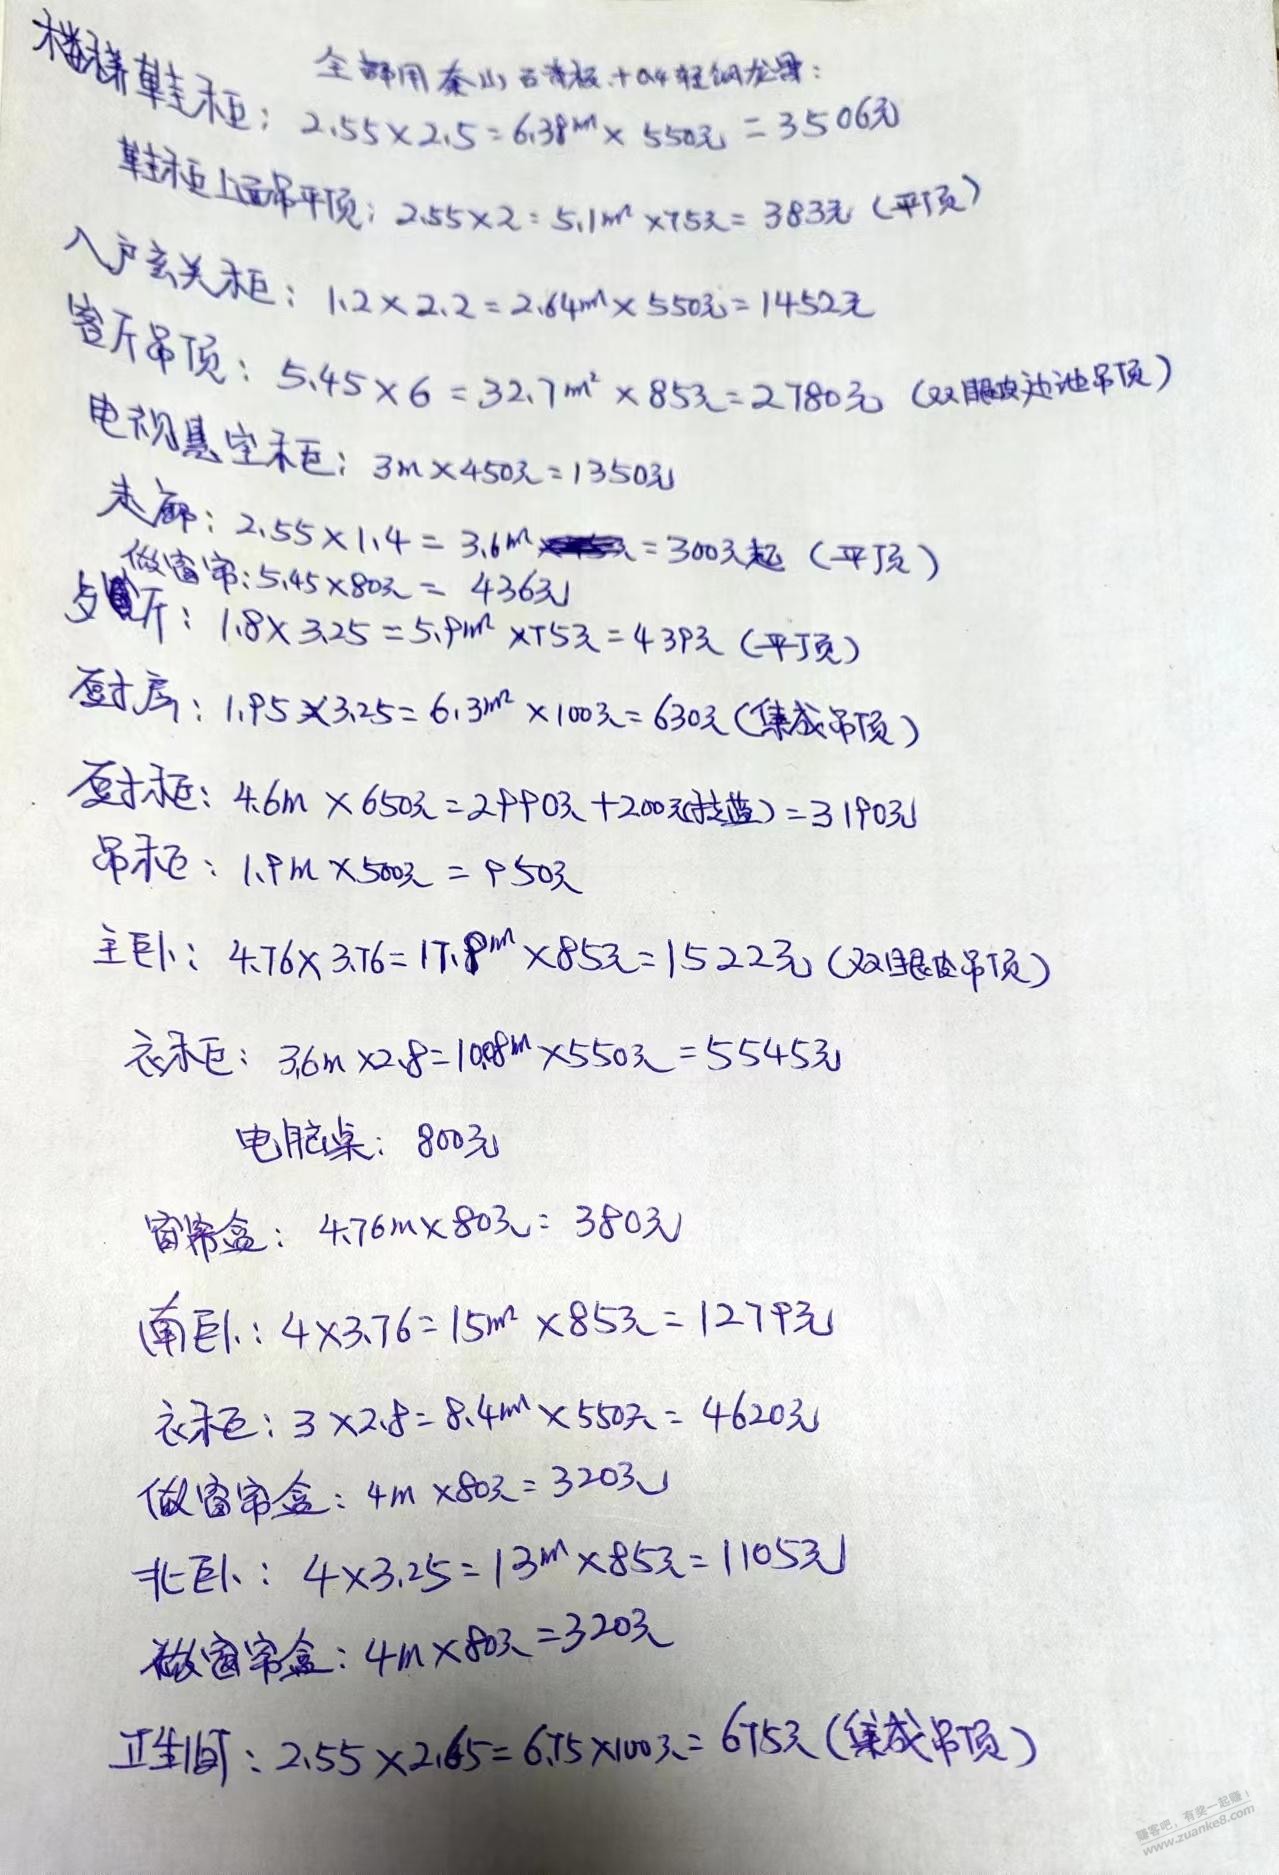 全部用泰山石膏板+0.4轻钢龙骨:
楼梯鞋柜: 2.55×2.5=6.38m²×550元=3506元
鞋柜上面吊平顶: 2.55×2=5.1m²×75元=383元 (平顶)
入户玄关柜: 1.2×2.2=2.64m²×550元=1452元
客厅吊顶: 5.45×6=32.7m²×85元=2780元 (双眼皮边池吊顶)
电视悬空柜: 3m×450元=1350元
走廊: 2.55×1.4=3.6m²=300元起 (平顶)
做窗帘: 5.45×80元=436元
厅: 1.8×3.25=5.9m²×75元=439元 (平顶)
厨房: 1.95×3.25=6.3m²×100元=630元 (集成吊顶)
厨柜: 4.6m×650元=2990元+200元(拉蓝)=3190元
吊柜: 1.9m×500元=950元
主卧: 4.76×3.76=17.9m²×85元=1522元 (双眼皮吊顶)
衣柜: 3.6m×2.8=10.08m²×550元=5545元
电脑桌: 800元
窗帘盒: 4.76m×80元=380元
南卧: 4×3.76=15m²×85元=1279元
衣柜: 3×2.8=8.4m²×550元=4620元
做窗帘盒: 4m×80元=320元
北卧: 4×3.25=13m²×85元=1105元
做窗帘盒: 4m×80元=320元
卫生间: 2.55×2.65=6.75×100元=675元 (集成吊顶)
赚客吧,有奖一起赚!
www.zuanke8.com